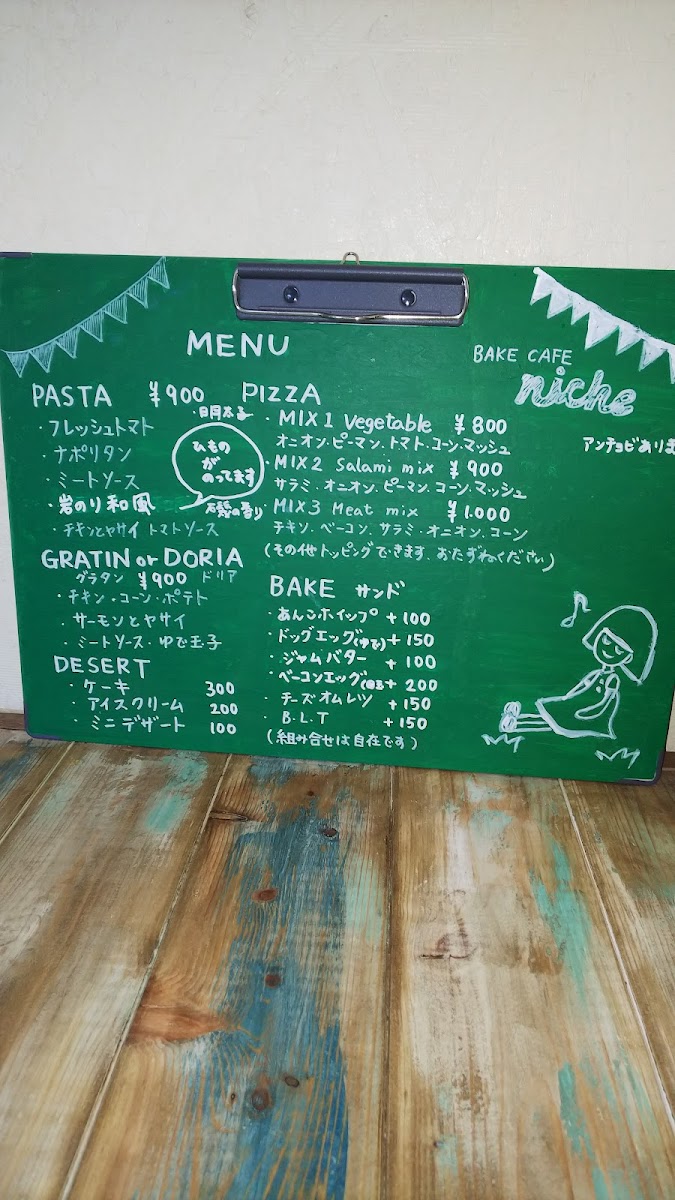 MENU
BAKE CAFE
niche
PASTA ¥900
・明太子
・フレッシュトマト
・ナポリタン
・ミートソース
・岩のり和風
・チキンとヤサイ トマトソース
ひもの
が
のってます
GRATIN or DORIA
グラタン ¥900 ドリア
・チキン・コーン・ポテト
・サーモンとヤサイ
・ミートソース・ゆで玉子
DESERT
・ケーキ 300
・アイスクリーム 200
・ミニデザート 100
PIZZA
・MIX1 Vegetable ¥800
オニオン・ピーマン・トマト・コーン・マッシュ
・MIX2 Salami mix ¥900
サラミ・オニオン・ピーマン・コーン・マッシュ
MIX3 Meat mix ¥1.000
チキン・ベーコン・サラミ・オニオン・コーン
(その他トッピングできます、おたずねください)
アンチョビありま
BAKE サンド
・あんこホイップ +100
・ドッグエッグ(ゆで)+150
・ジャムバター +100
・ベーコンエッグ +200
・チーズオムレツ +150
・B.L.T +150
(組み合せは自在です)